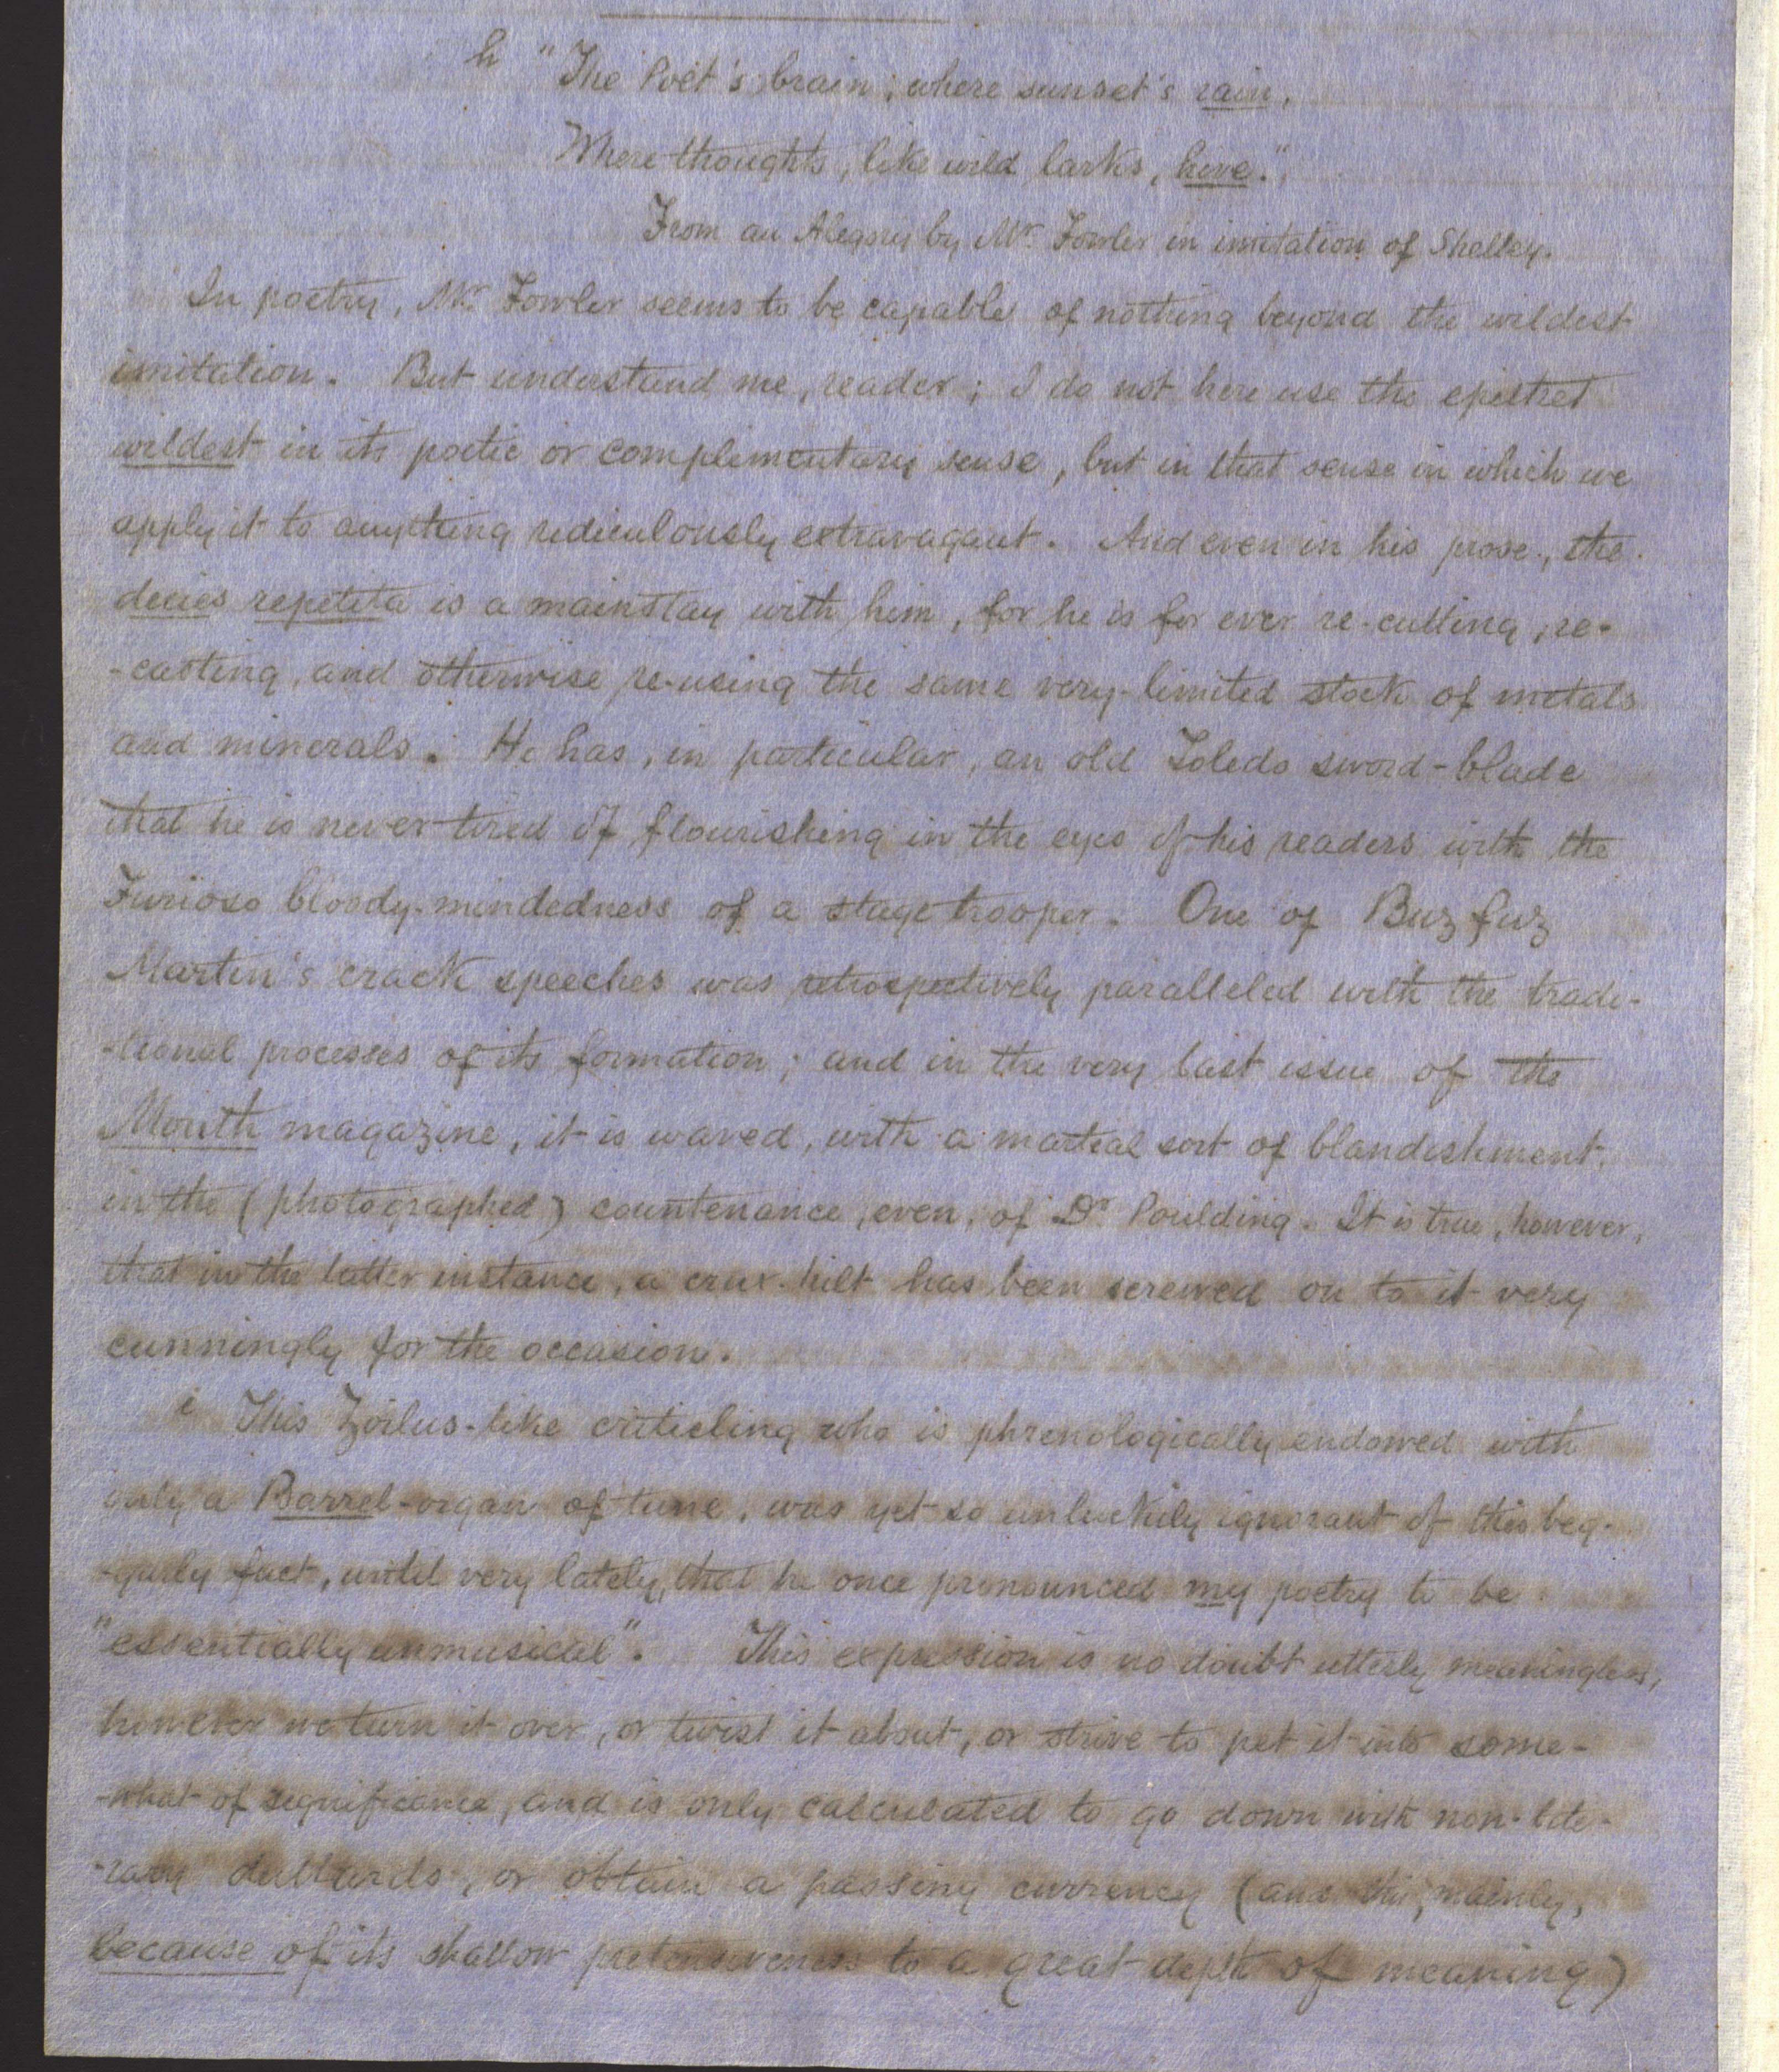 h "The Poet's brain; where sunset's rain,
Where thoughts, like wild larks, hive."
From an Alegory by Mr. Fowler in imitation of Shelley.
In poetry, Mr. Fowler seems to be capable of nothing beyond the wildest
imitation. But understand me, reader; I do not here use the epithet
wildest in its poetic or complimentary sense, but in that sense in which we
apply it to anything ridiculously extravagant. And even in his prose, the
decies repetita is a mainstay with him, for he is for ever re-culling, re-
-casting, and otherwise re-using the same very-limited stock of metals
and minerals. He has, in particular, an old Toledo sword-blade
that he is never tired of flourishing in the eyes of his readers with the
Furioso bloody-mindedness of a stage trooper. One of Buzfuz
Martin's crack speeches was retrospectively paralleled with the tradi-
-tional processes of its formation; and in the very last issue of the
Month magazine, it is waved, with a martial sort of blandishment,
in the (photographed) countenance, even, of Dr Poulding. It is true, however,
that in the latter instance, a crux-hilt has been screwed on to it very
cunningly for the occasion.
i This Zoilus-like criticling who is phrenologically endowed with
only a Barrel-organ of tune, was yet so unluckily ignorant of this beg-
-garly fact, until very lately, that he once pronounced my poetry to be
"essentially unmusical". This expression is no doubt utterly meaningless,
however we turn it over, or twist it about, or strive to pet it into some-
-what of significance, and is only calculated to go down with non-lite-
-rary dullards, or obtain a passing currency (and this, mainly,
because of its shallow pretensiveness to a great depth of meaning)